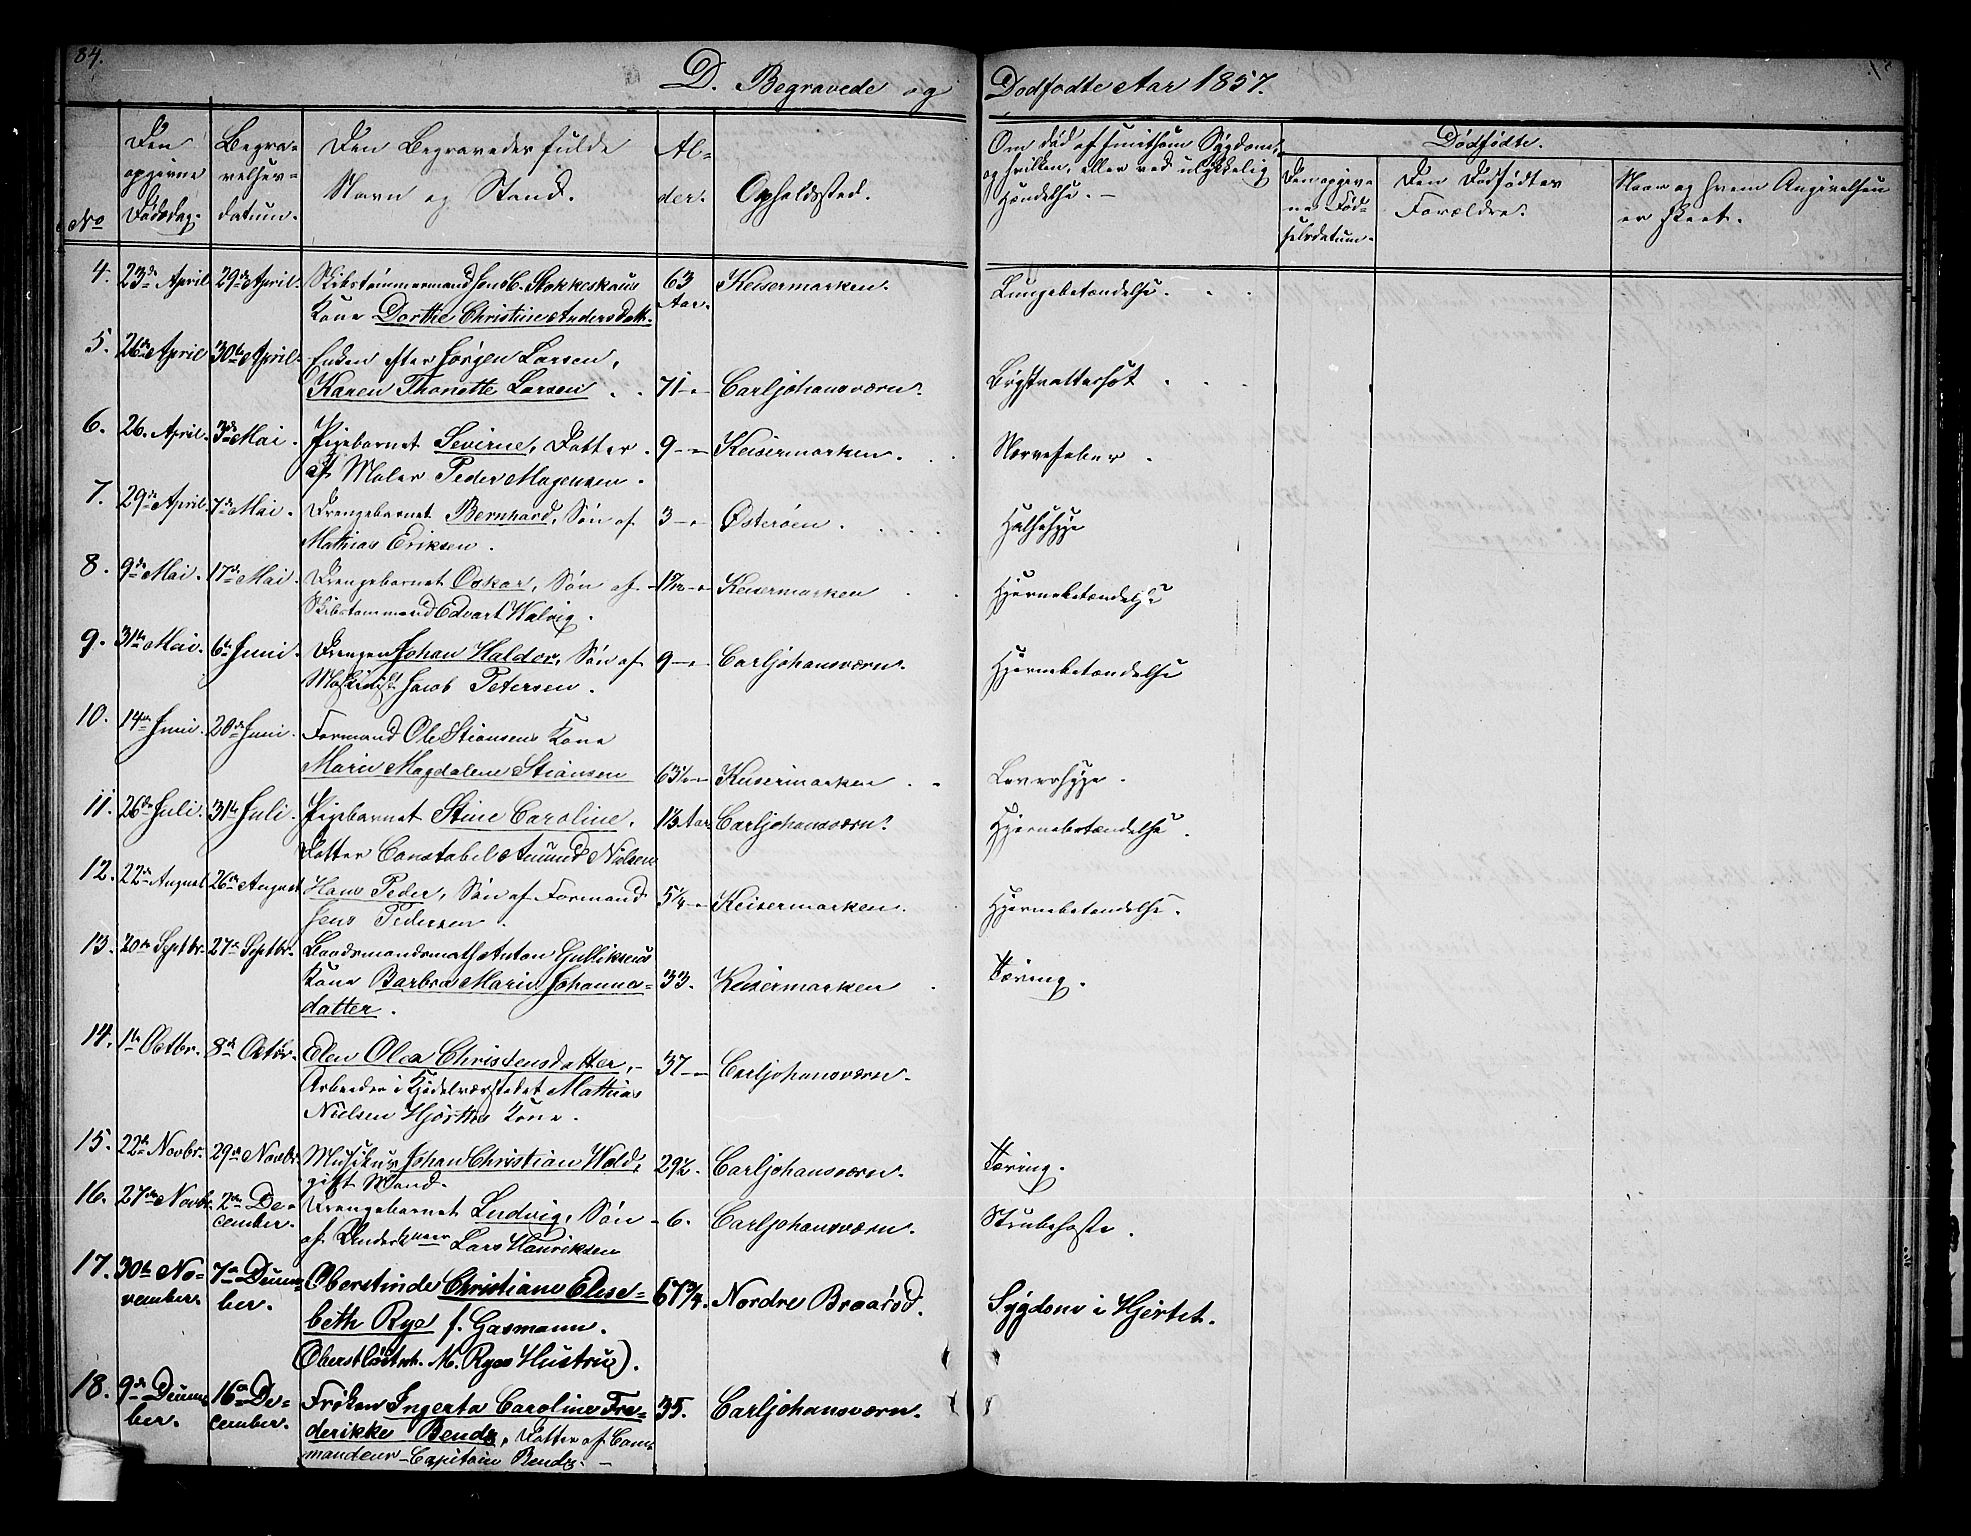 84.
D. Begravede og Dødfødte Aar 1857.
No
Den opgivne Dødsdag.
Begravelsesdatum.
Den Begravedes fulde Navn og Stand.
Alder.
Opholdssted.
Om død af smitsom Sygdom, og hvilken, eller ved ulykkelig Hændelse. –
Dødfødte.
Den opgivne Fødselsdatum.
Den Dødfødtes Forældre.
Naar og hvem Angivelsen er skeet.
4. 23de April 29de April. Skibstømmermand Jens C. Stokkeskaus 63 Keisermarken. Lungebetændelse.
Kone Dorthe Christine Andersdatt. Aar.
5. 26de April 30te April. Enken efter Jørgen Larsen,
Karen Thonette Larsen 71-" Carljohansværn. Brystvattersot
6. 26. April. 3de Mai. Pigebarnet Sevirne, Datter 9-" Keisermarken. Nervefeber
af Maler Peder Mogensen.
7. 29de April. 7de Mai. Drengebarnet Bernhard, Søn af 3-" Østerøen. Halssyge
Mathias Eriksen.
8. 9de Mai. 17de Mai. Drengebarnet Oskar, Søn af Keisermarken Hjernebetændelse
Skibstømmand Edvart Walvig.
9. 31te Mai. 6te Juni. Drengen Johan Haldor, Søn af 9-" Carljohansværn. Hjernebetændelse
Jacob Petersen.
10. 14de Juni. 20de Juni. Formand Ole Stiansens Kone
Marie Magdalene Stiansen 63½-" Keisermarken Leversyge.
11. 26de Juli. 31te Juli. Pigebarnet Stine Caroline, Aar Carljohansværn. Hjernebetændelse.
Datter Constabel Amund Nielsen
12. 22de August 26de August Hans Peder, Søn af Formand 5¼-" Keisermarken. Hjernebetændelse.
Jens Pedersen.
13. 20de Septbr. 27de Septbr. Baadsmandsmath Anton Gulliksens
Kone Barbra Marie Johanna- 33. Keisermarken Tæring.
datter.
14. 1te Octbr. 8de Octbr. Elen Olea Christensdatter, – 37-" Carljohansværn.
Arbeider i Kjedelværkstedet Mathias
Nielsen Hjorths Kone.
15. 22de Novbr. 29de Novbr. Musikus Johan Christian Wold, 29½. Carljohansværn. Tæring.
gift Mand.
16. 27de Novbr. 2den De- Drengebarnet Ludvig, Søn 6. Carljohansværn. Strubehoste.
cember. af Lars Henriksen
17. 30te No- 7de Decem- Oberstinde Christiane Elese- 67¾. Nordre Braarød. Sygdom i Hjertet.
vember. ber. beth Rye f. Gasmann.
(Oberstløitnt. M. Ryes Hustru).
18. 9de Decem- 16de De- Frøken Ingerta Caroline Fre- 35. Carljohansværn.
ber. cember. derikke Bendz, Datter af Com-
mandeur-Capitain Bendz. –